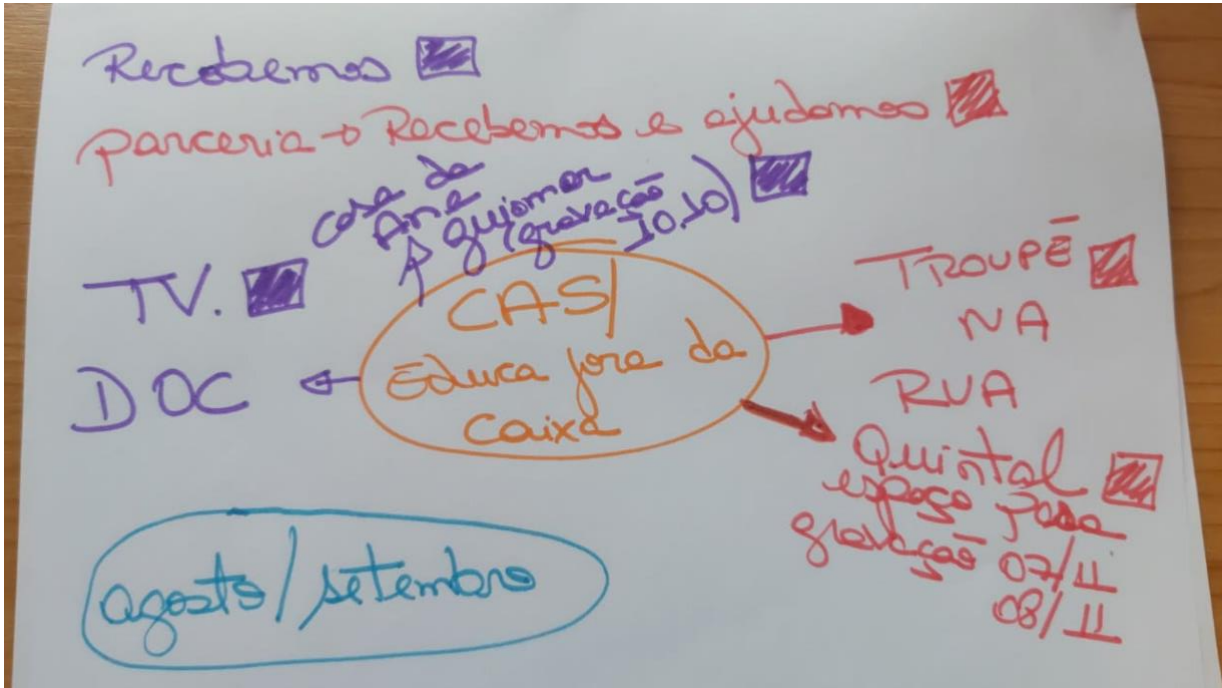 Recebemos
parceria → Recebemos e ajudamos
casa da
Ana guiomar
(gravação
10.10)
TV.
DOC
CAS/
Educa fora da
Caixa
TROUPÉ
NA
RUA
Quintal
espaço para
gravação 07/11
08/11
agosto/setembro